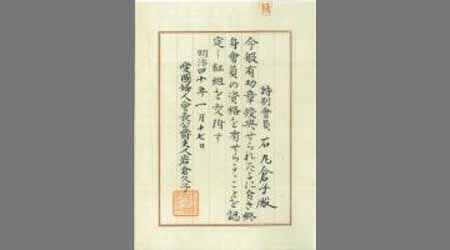 特別會員 石丸倉子殿
今般有功章授與せられたるに付き終
身會員の資格を有せらるゝことを認
定し紅組を交附す
明治四十年一月十七日
愛國婦人會長公爵夫人岩倉久子